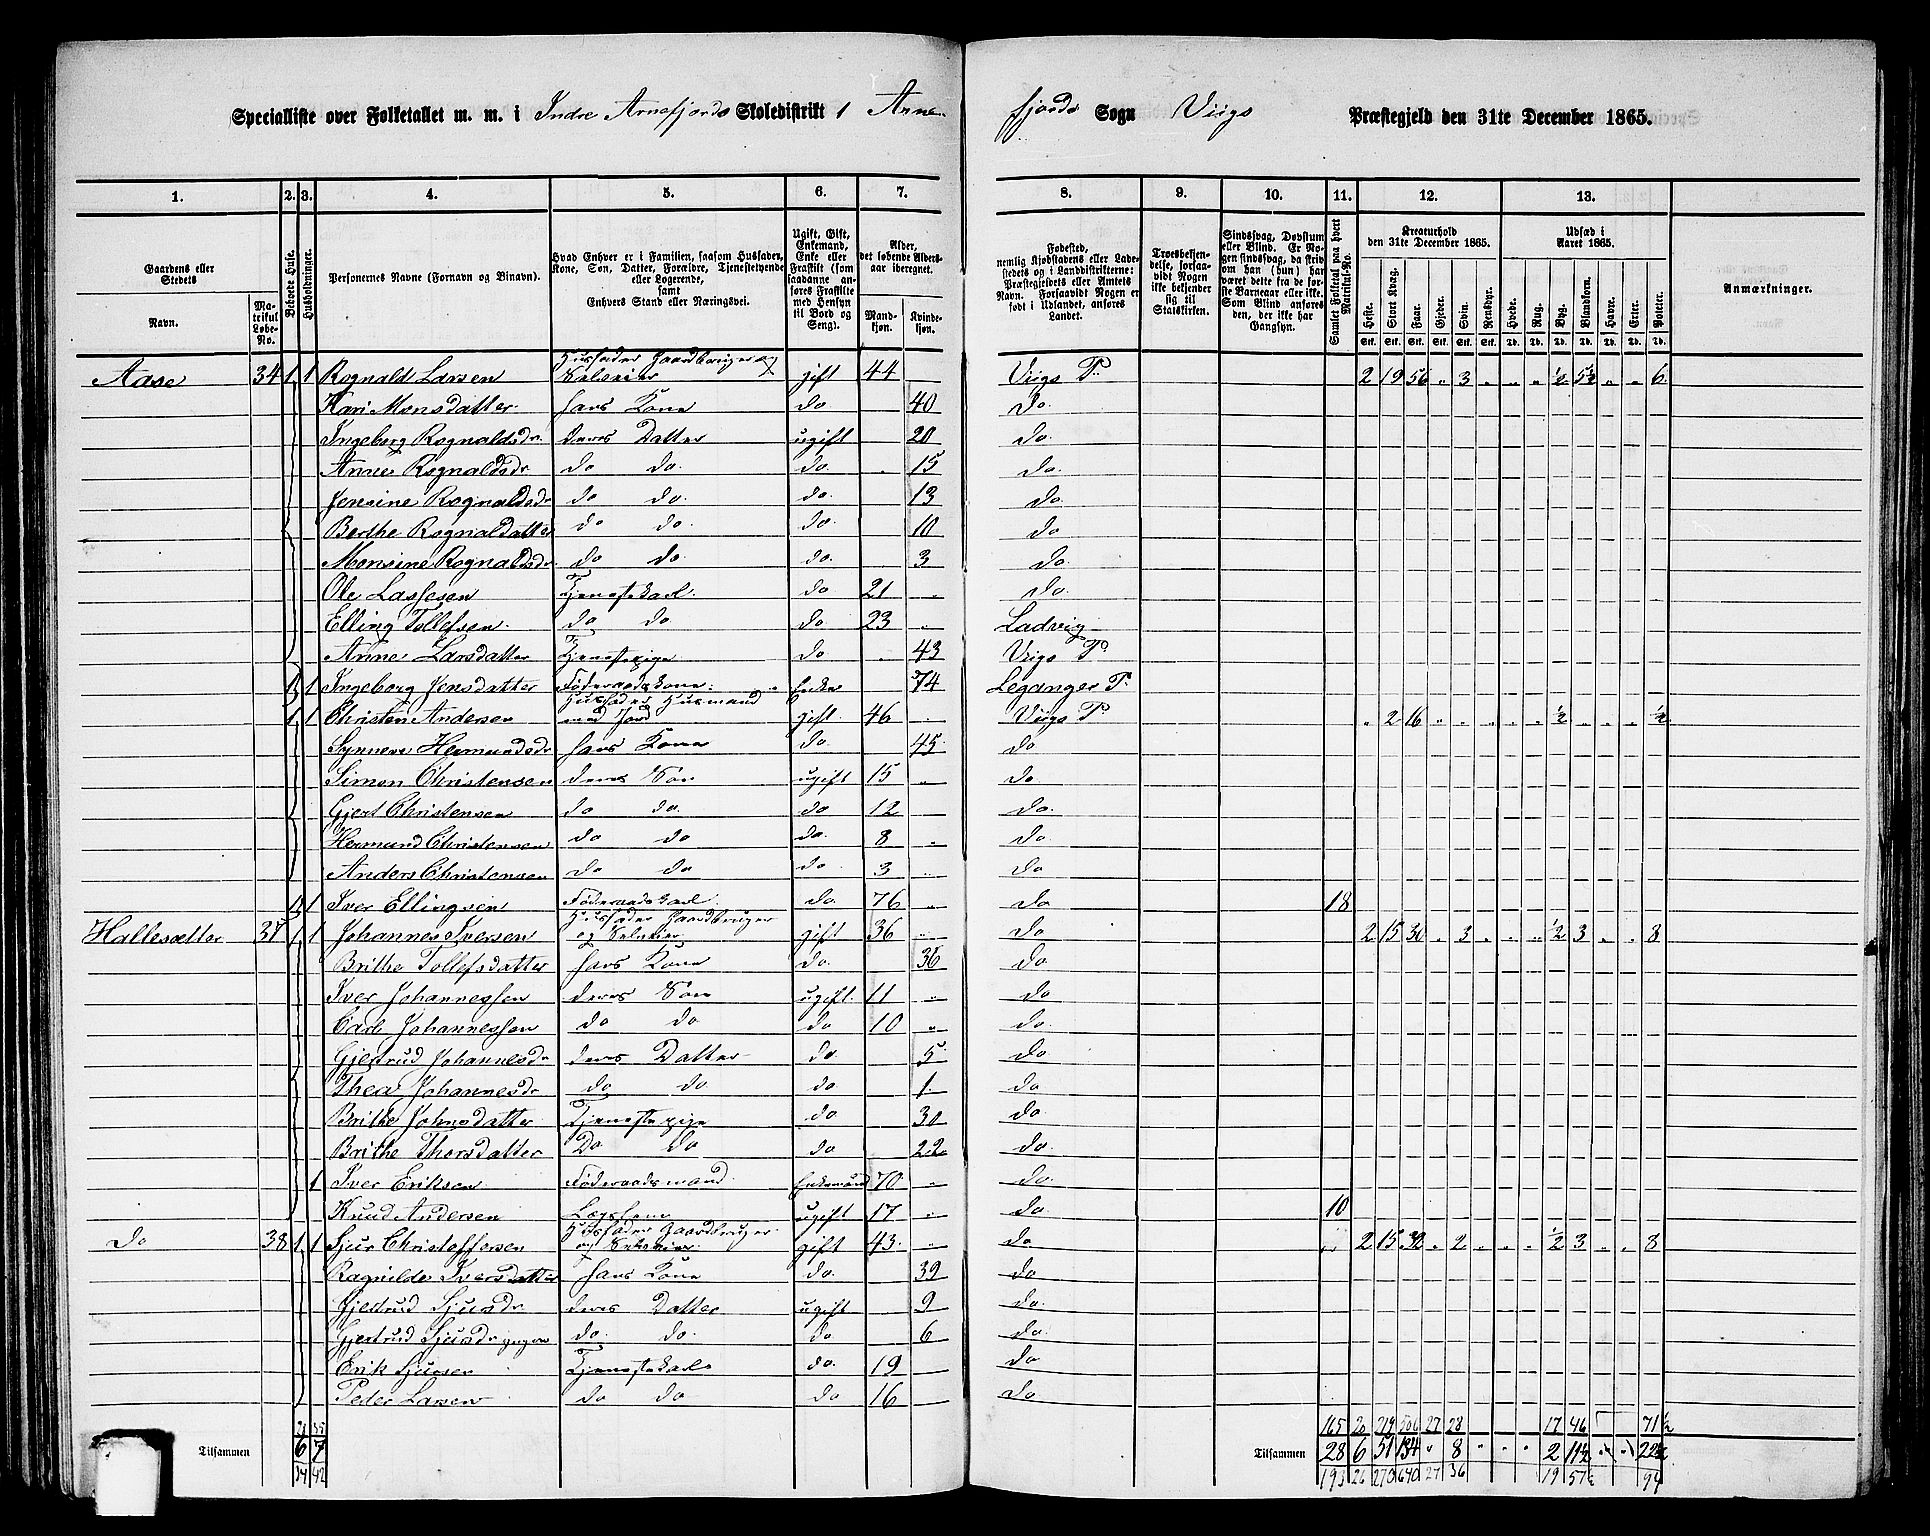 Specialliste over Folketallet m. m. i Indre Arnefjords Skoledistrikt 1 Arne- fjords Sogn Viigs Præstegjeld den 31te December 1865.
1. 2. 3. 4. 5. 6. 7. 8. 9. 10. 11. 12. 13.
Gaardens eller Stedets Navn. Matrikul Løbe-No. Beboede Huse. Husholdninger. Personernes Navne (Fornavn og Binavn). Hvad Enhver er i Familien, saasom Husfader, Kone, Søn, Datter, Forældre, Tjenestetyende eller Logerende, samt Enhvers Stand eller Næringsvei. Ugift, Gift, Enkemand, Enke eller Fraskilt (som saadanne anføres Fraskilte med Hensyn til Bord og Seng). Alder, det løbende Alders-aar iberegnet. Mandkjøn. Kvindekjøn.
Fødested, nemlig Kjøbstadens eller Ladestedets og i Landdistrikterne: Præstegjeldets eller Amtets Navn. Forsaavidt Nogen er født i Udlandet, anføres Landet. Troesbekjendelse, forsaavidt Nogen ikke bekjender sig til Statskirken. Sindssvag, Døvstum eller Blind. Er Nogen sindssvag, da skriv om han (hun) har været dette fra de første Barneaar eller ikke. Som Blind anføres den, der ikke har Gangsyn. Samlet Folketal paa hvert Matrikul-No. Kreaturhold den 31te December 1865. Udsæd i Aaret 1865. Anmærkninger.
Heste. Stort Kvæg. Faar. Gjeder. Svin. Rensdyr. Hvede. Rug. Byg. Blandkorn. Havre. Erter. Poteter.
Stk. Stk. Stk. Stk. Stk. Stk. Td. Td. Td. Td. Td. Td. Td.
Aase 34 1 1 Rognald Larsen Husfader Gaardbruger og Selveier gift 44 Viigs P. 2 19 56 „ 3 „ „ „ ½ 5½ „ „ 6
Kari Monsdatter hans Kone do 40 do
Ingeborg Rognaldsdr. deres Datter ugift 20 do
Anne Rognaldsdr do do do 15 do
Jensine Rognaldsdr do do do 13 do
Berthe Rognaldsdatter do do do 10 do
Monsine Rognaldsdr. do do do 3 do
Ole Lassesen Tjenestekarl do 21 „ do
Elling Tollefsen do do do 23 „ Ladvig
Anne Larsdatter Tjenestepige do 43 Viigs P.
1 Ingeborg Jensdatter Føderaadskone Enke 74 Leganger P.
1 1 Christen Andersen Husfader Husmand med Jord gift 46 Viigs P. „ 2 16 „ „ „ „ „ ½ „ „ „ ½
Synneve Hermundsdr hans Kone do 45 do
Simon Christensen deres Søn ugift 15 „ do
Gjert Christensen do do do 12 do
Hermund Christensen do do do 8 „ do
Anders Christensen do do do 3 „ do
1 Iver Ellingsen Føderaadskarl do 76 „ do 18
Hallesætter 37 1 1 Johannes Iversen Husfader Gaardbruger og Selveier gift 36 „ do 2 15 30 „ 3 „ „ „ ½ 3 „ „ 8
Brithe Tollefsdatter hans Kone do 36 do
Iver Johannessen deres Søn ugift 11 „ do
Carl Johannessen do do do 10 „ do
Gjertrud Johannesdr deres Datter do 5 do
Thea Johannesdr do do do 1 do
Brithe Johnsdatter Tjenestepige do 30 do
Brithe Thorsdatter Do do do 22 do
1 Iver Eriksen Føderaadsmand Enkemand 70 „ do
Knud Andersen Lægslem ugift 17 „ do 10
do 38 1 1 Sjur Christoffersen Husfader Gaardbruger og Selveier gift 43 „ do 2 15 32 „ 2 „ „ „ ½ 3 „ „ 8
Ragnilde Iversdatter hans Kone do 39 do
Gjertrud Sjursdr deres Datter ugift 9 do
Gjertrud Sjursdr yngre do do do 6 do
Erik Sjursen Tjenestekarl do 19 do
Peder Larsen do do do 16 do
165 20 219 506 27 28 17 46 71½
Tilsammen 6 7 Tilsammen 28 6 51 134 „ 8 „ „ „ 2 11½ „ „ 22½
34 42 193 26 270 640 27 36 19 57½ 94